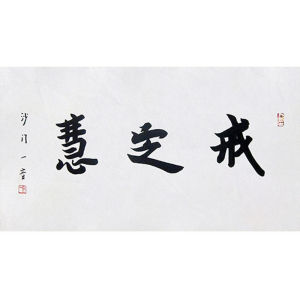 戒定慧
沙门一